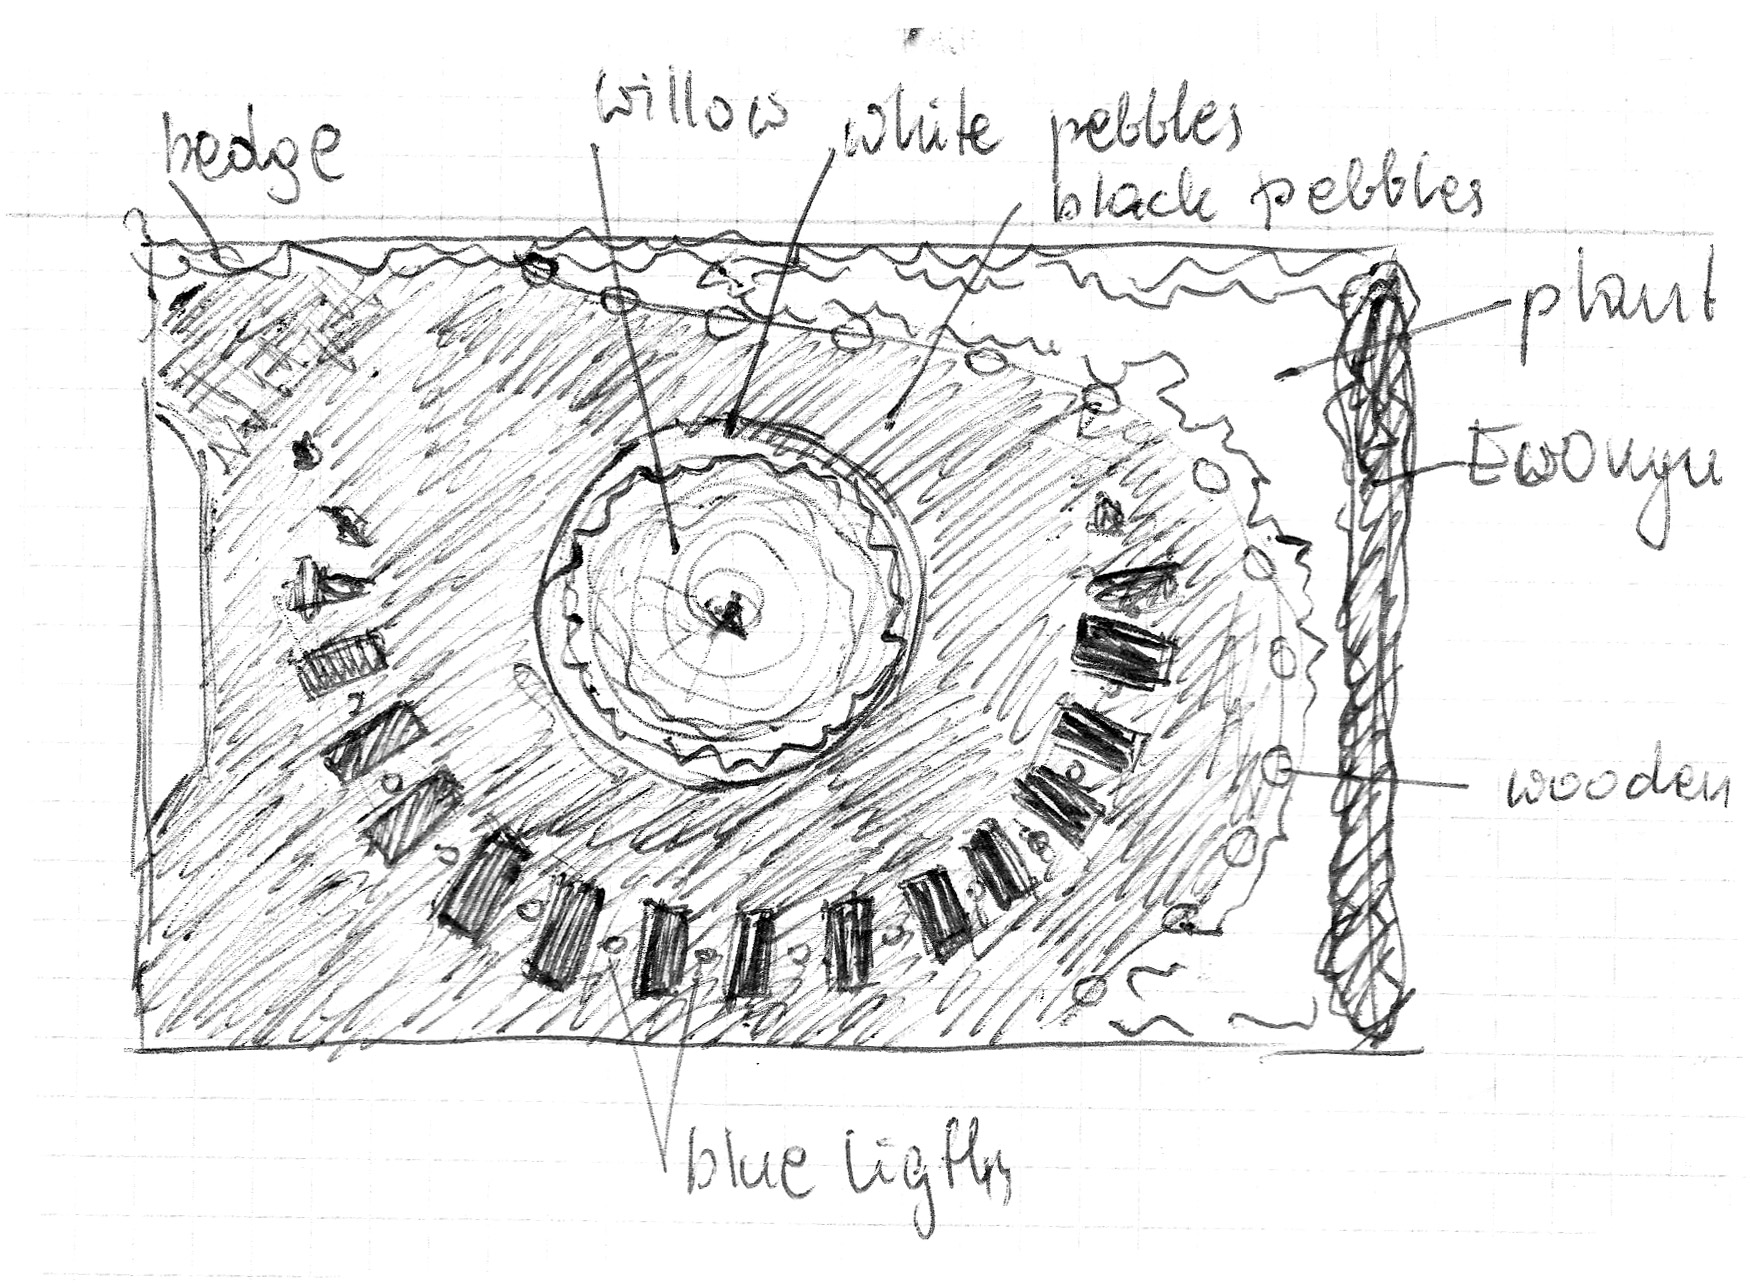 hedge
willow
white pebbles
black pebbles
plant
Ewonyu
wooden
blue ligths